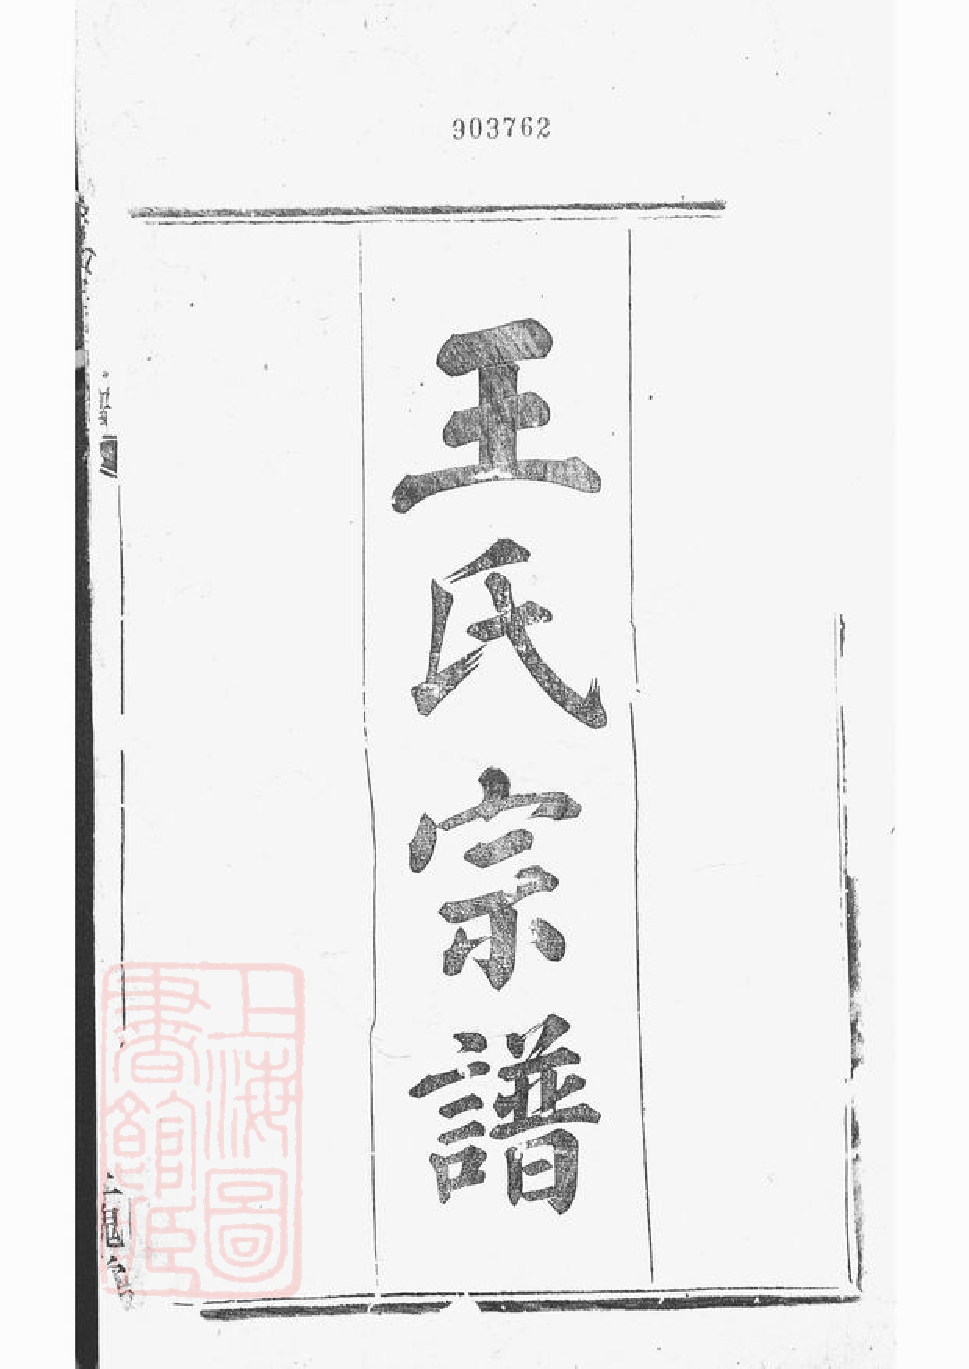 903762
王氏宗譜
上海圖
書館藏